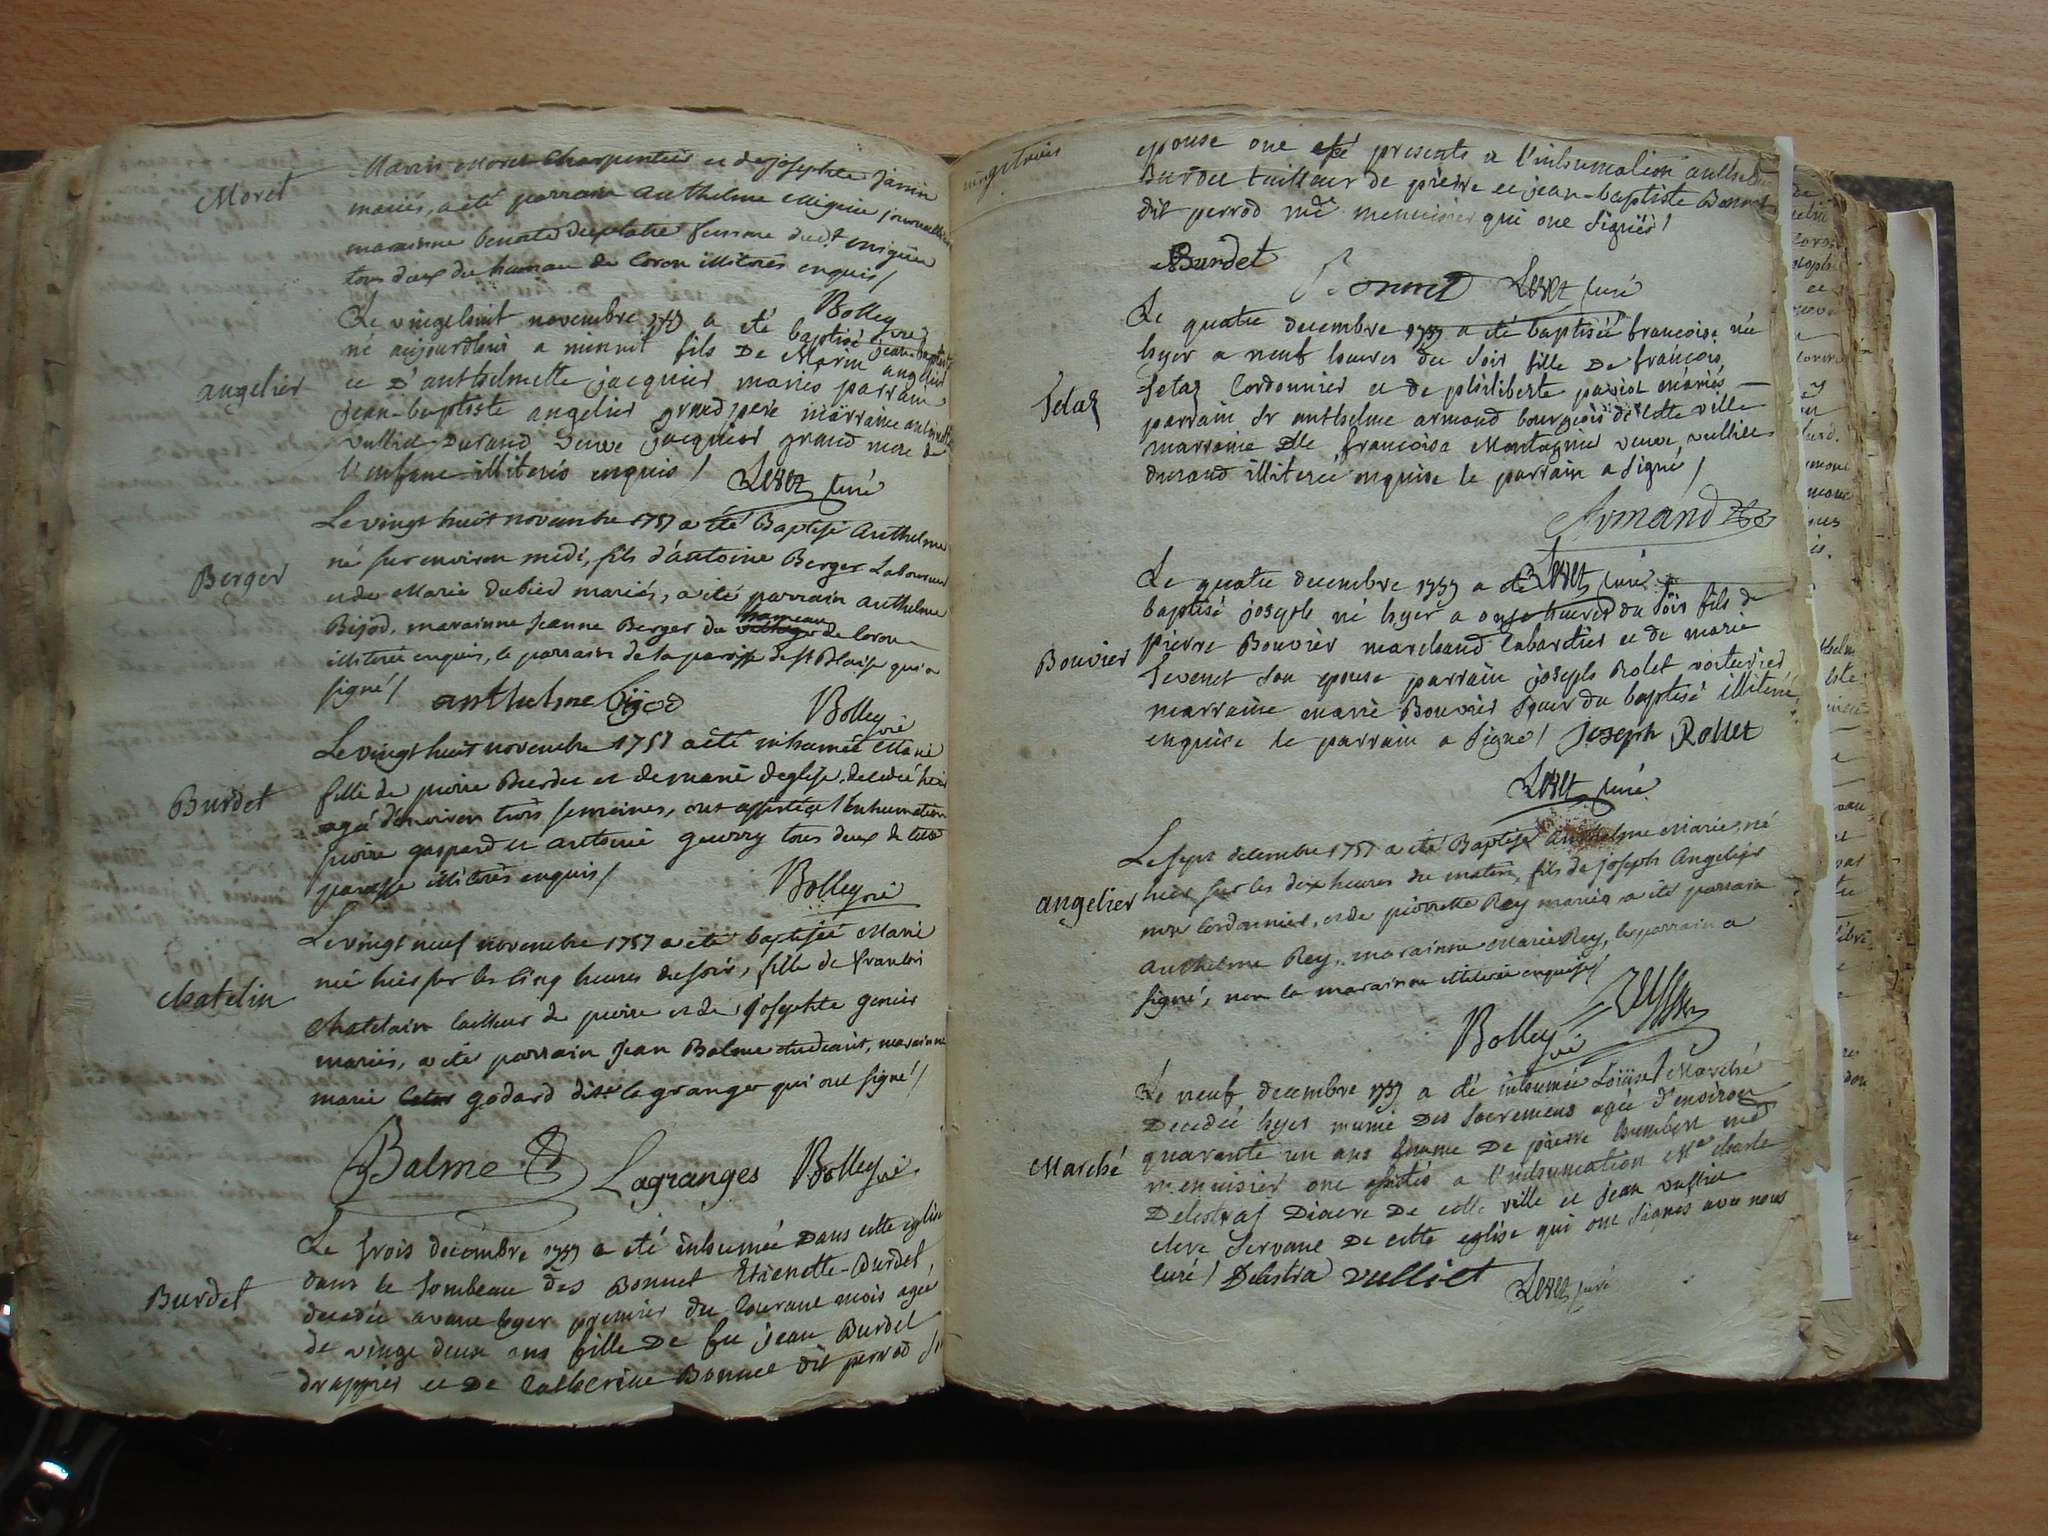 Moret
Marin Moret Charpentier et de josephte Janin
mariés, a été parrain Anthelme Miguin journallier
marainne benoite duplatre femme dudt miguin
tous deux du hameau de Coron illiterés enquis/
Bolley
Le vingt huit novembre 1757 a été baptisé jean baptiste
né aujourdhuis a minuit fils De Marin angelier
angelier
et D'anthelmette jacquier mariés parrain
jean-baptiste angelier grand pere marraine antoinette
vulliet Durand veuve jacquier grand mere de
l'enfant illiterés enquis /
Levet curé
Le vingt huit novembre 1757 a été Baptisé Anthelme
né sur environ midi, fils d'antoine Berger Laboureur
Berger
et de Marie dubied mariés, a été parrain anthelme
Bijod, marainne Jeanne Berger du village hameau de Coron
illiterée enquise, le parrain de la paroisse de St Blaise qui a
signé/ anthelme bijod
Bolley vic
Le vingt huit novembre 1757 a été inhumée Marie
fille de pierre Burdet et de marie deglise, decedée hier
Burdet
agée d'environ trois semaines, ont assisté a l'inhumation
pierre gaspard et antoine guerry tous deux de cette
paroisse illiterés enquis/
Bolley vic
Le vingt neuf novembre 1757 a été baptisée Marie
née hier sur les cinq heures du soir, fille de francois
chatelin
Chatelain tailleur de pierre et de josephte genier
mariés, a été parrain Jean Balme etudiant, marainne
marie godard dite lagrange qui ont signé/
Balme Lagranges Bolley vic
Le trois decembre 1757 a été inhumée Dans cette eglise
dans le tombeau des Bonnet Etienette Burdet
Burdet
decedée avant hyer premier du courant mois agée
de vingt deux ans fille De feu jean Burdet
drappier et De Catherine Bonnet dit perrod
vingt trois
epouse ont été presents a l'inhumation anthelme
Burdet tailleur de pierre et jean-baptiste Bonnet
dit perrod me menuisier qui ont signés /
Burdet
Bonnet Levet curé
Le quatre decembre 1757 a été baptisée francoise née
hyer a neuf heures du soir fille De francois
Setaz
Setaz Cordonnier et de philiberte paviot mariés
parrain Sr anthelme armand bourgeois de cette ville
marraine Dlle francoise Montagnie veuve vulliet
durand illiterée enquise le parrain a signé /
Armand
Levet curé
Le quatre decembre 1757 a été
baptisé joseph né hyer a onze heures du soir fils de
Bouvier
pierre Bouvier marchand Cabaretier et de marie
Tevenet son epouse parrain joseph Rolet voiturier
marraine marie Bouvier soeur du baptisé illiterée
enquise le parrain a signé / joseph Rollet
Levet curé
Le sept decembre 1757 a été Baptisé Anthelme Marie, né
hier sur les dix heures du matin, fils de joseph Angelier
angelier
me Cordonnier, et de pierrette Rey mariés a été parrain
anthelme Rey, marainne Marie Rey, le parrain a
signé, non la marainne illiterée enquise/
Bolley vic
Le neuf decembre 1757 a été inhumée Loüise Marché
Decedée hyer munie Des Sacremens agée d'environ
Marché
quarante un ans femme De pierre humbert me
menuisier ont assistés a l'inhumation Me charle
Delestraz Diacre De cette ville et jean vulliet
clerc servant De cette eglise qui ont signés avec nous
curé / Delestra vulliet
Levet curé